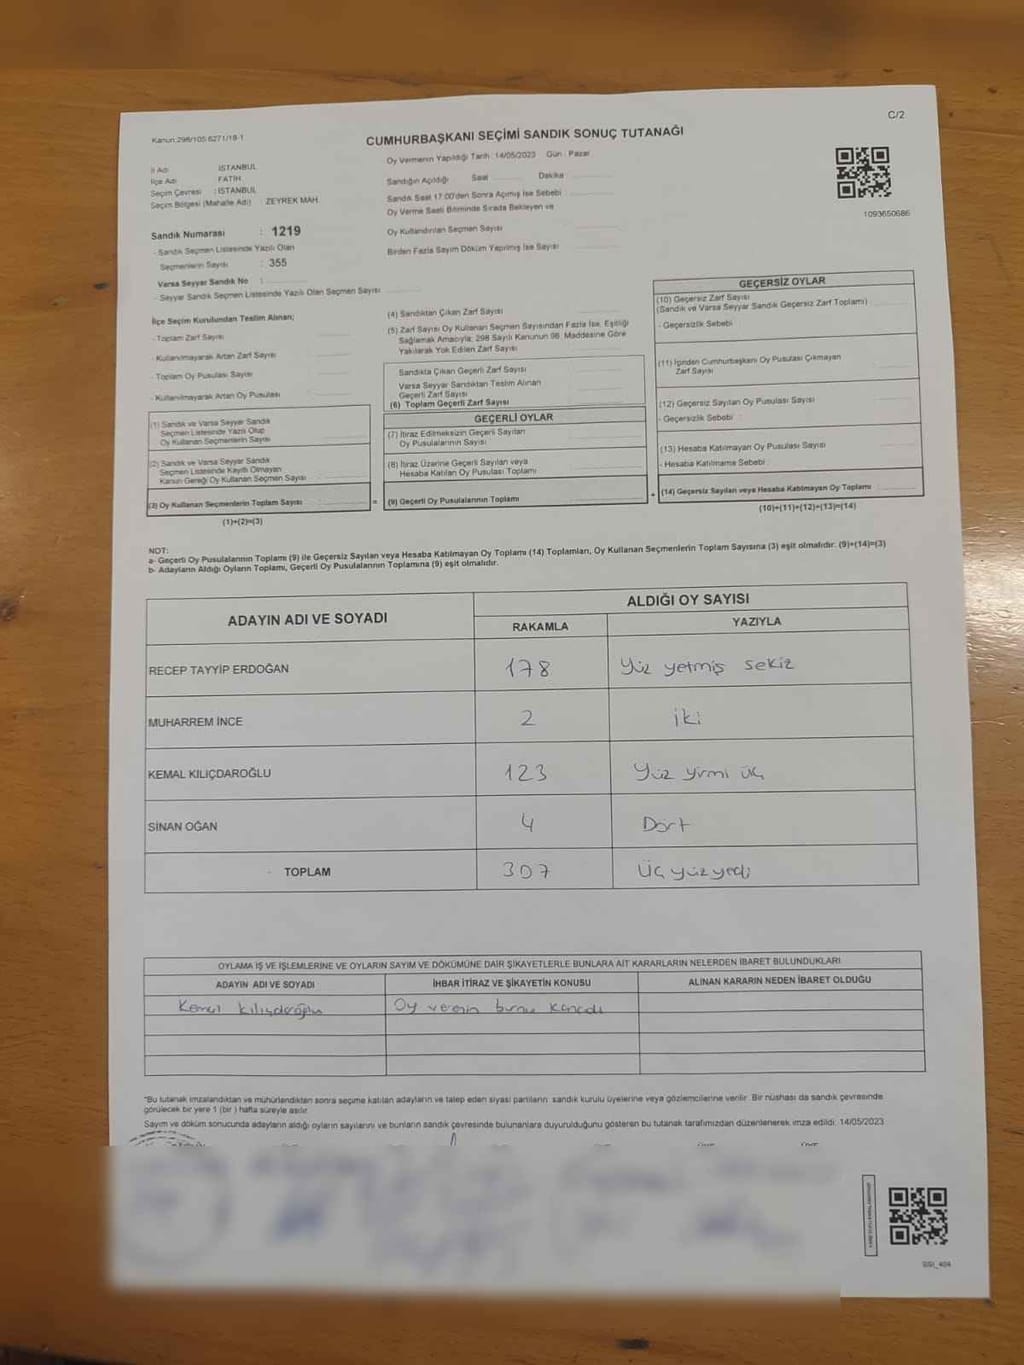 C/2
Kanun:298/105 6271/18-1
CUMHURBAŞKANI SEÇİMİ SANDIK SONUÇ TUTANAĞI
Oy Vermenin Yapıldığı Tarih :14/05/2023 Gün : Pazar
İl Adı : İSTANBUL
İlçe Adı : FATİH
Seçim Çevresi : İSTANBUL
Seçim Bölgesi (Mahalle Adı) : ZEYREK MAH.
Sandığın Açıldığı Saat Dakika
Sandık Saat 17:00'den Sonra Açılmış İse Sebebi
Oy Verme Saati Bitiminde Sırada Bekleyen ve
Oy Kullandırılan Seçmen Sayısı
Birden Fazla Sayım Döküm Yapılmış İse Sayısı
1093650686
Sandık Numarası : 1219
- Sandık Seçmen Listesinde Yazılı Olan
Seçmenlerin Sayısı : 355
Varsa Seyyar Sandık No :
- Seyyar Sandık Seçmen Listesinde Yazılı Olan Seçmen Sayısı
İlçe Seçim Kurulundan Teslim Alınan;
- Toplam Zarf Sayısı
- Kullanılmayarak Artan Zarf Sayısı
- Toplam Oy Pusulası Sayısı
- Kullanılmayarak Artan Oy Pusulası
(1) Sandık ve Varsa Seyyar Sandık
Seçmen Listesinde Yazılı Olup
Oy Kullanan Seçmenlerin Sayısı
(2) Sandık ve Varsa Seyyar Sandık
Seçmen Listesinde Kayıtlı Olmayan
Kanun Gereği Oy Kullanan Seçmen Sayısı
(3) Oy Kullanan Seçmenlerin Toplam Sayısı
(1)+(2)=(3)
(4) Sandıktan Çıkan Zarf Sayısı
(5) Zarf Sayısı Oy Kullanan Seçmen Sayısından Fazla İse, Eşitliği
Sağlamak Amacıyla; 298 Sayılı Kanunun 98. Maddesine Göre
Yakılarak Yok Edilen Zarf Sayısı
Sandıkta Çıkan Geçerli Zarf Sayısı
Varsa Seyyar Sandıktan Teslim Alınan
Geçerli Zarf Sayısı
(6) Toplam Geçerli Zarf Sayısı
GEÇERLİ OYLAR
(7) İtiraz Edilmeksizin Geçerli Sayılan
Oy Pusulalarının Sayısı
(8) İtiraz Üzerine Geçerli Sayılan veya
Hesaba Katılan Oy Pusulası Toplamı
= (9) Geçerli Oy Pusulalarının Toplamı +
GEÇERSİZ OYLAR
(10) Geçersiz Zarf Sayısı
(Sandık ve Varsa Seyyar Sandık Geçersiz Zarf Toplamı)
- Geçersizlik Sebebi
(11) İçinden Cumhurbaşkanı Oy Pusulası Çıkmayan
Zarf Sayısı
(12) Geçersiz Sayılan Oy Pusulası Sayısı
- Geçersizlik Sebebi :
(13) Hesaba Katılmayan Oy Pusulası Sayısı
- Hesaba Katılmama Sebebi
(14) Geçersiz Sayılan veya Hesaba Katılmayan Oy Toplamı
(10)+(11)+(12)+(13)=(14)
NOT:
a- Geçerli Oy Pusulalarının Toplamı (9) ile Geçersiz Sayılan veya Hesaba Katılmayan Oy Toplamı (14) Toplamları, Oy Kullanan Seçmenlerin Toplam Sayısına (3) eşit olmalıdır. (9)+(14)=(3)
b- Adayların Aldığı Oyların Toplamı, Geçerli Oy Pusulalarının Toplamına (9) eşit olmalıdır.
ADAYIN ADI VE SOYADI ALDIĞI OY SAYISI
RAKAMLA YAZIYLA
RECEP TAYYİP ERDOĞAN 178 Yüz yetmiş sekiz
MUHARREM İNCE 2 iki
KEMAL KILIÇDAROĞLU 123 Yüz yirmi üç
SİNAN OĞAN 4 Dört
TOPLAM 307 Üç yüz yedi
OYLAMA İŞ VE İŞLEMLERİNE VE OYLARIN SAYIM VE DÖKÜMÜNE DAİR ŞİKAYETLERLE BUNLARA AİT KARARLARIN NELERDEN İBARET BULUNDUKLARI
ADAYIN ADI VE SOYADI İHBAR İTİRAZ VE ŞİKAYETİN KONUSU ALINAN KARARIN NEDEN İBARET OLDUĞU
Kemal kılıçdaroğlu Oy verenin burnu kanadı
"Bu tutanak imzalandıktan ve mühürlendikten sonra seçime katılan adayların ve talep eden siyasi partilerin sandık kurulu üyelerine veya gözlemcilerine verilir. Bir nüshası da sandık çevresinde
görülecek bir yere 1 (bir) hafta süreyle asılır.
Sayım ve döküm sonucunda adayların aldığı oyların sayılarını ve bunların sandık çevresinde bulunanlara duyurulduğunu gösteren bu tutanak tarafımızdan düzenlenerek imza edildi. 14/05/2023